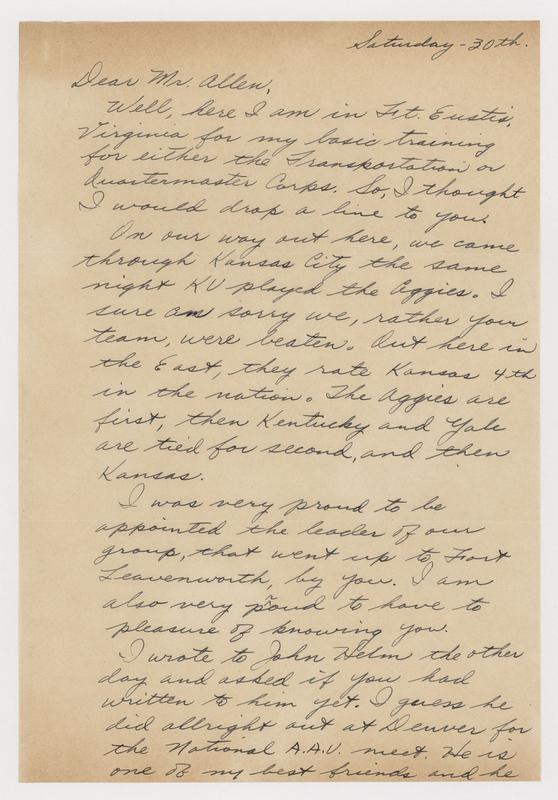 Saturday - 30th.
Dear Mr. Allen,
Well, here I am in Ft. Eustis,
Virginia for my basic training
for either the Transportation or
Quartermaster Corps. So, I thought
I would drop a line to you.
On our way out here, we came
through Kansas City the same
night KU played the Aggies. I
sure am sorry we, rather your
team, were beaten. Out here in
the East, they rate Kansas 4th
in the nation. The Aggies are
first, then Kentucky and Yale
are tied for second, and then
Kansas.
I was very proud to be
appointed the leader of our
group, that went up to Fort
Leavenworth, by you. I am
also very proud to have to
pleasure of knowing you.
I wrote to John Helm the other
day and asked if you had
written to him yet. I guess he
did allright out at Denver for
the National A.A.U. meet. He is
one of my best friends and he